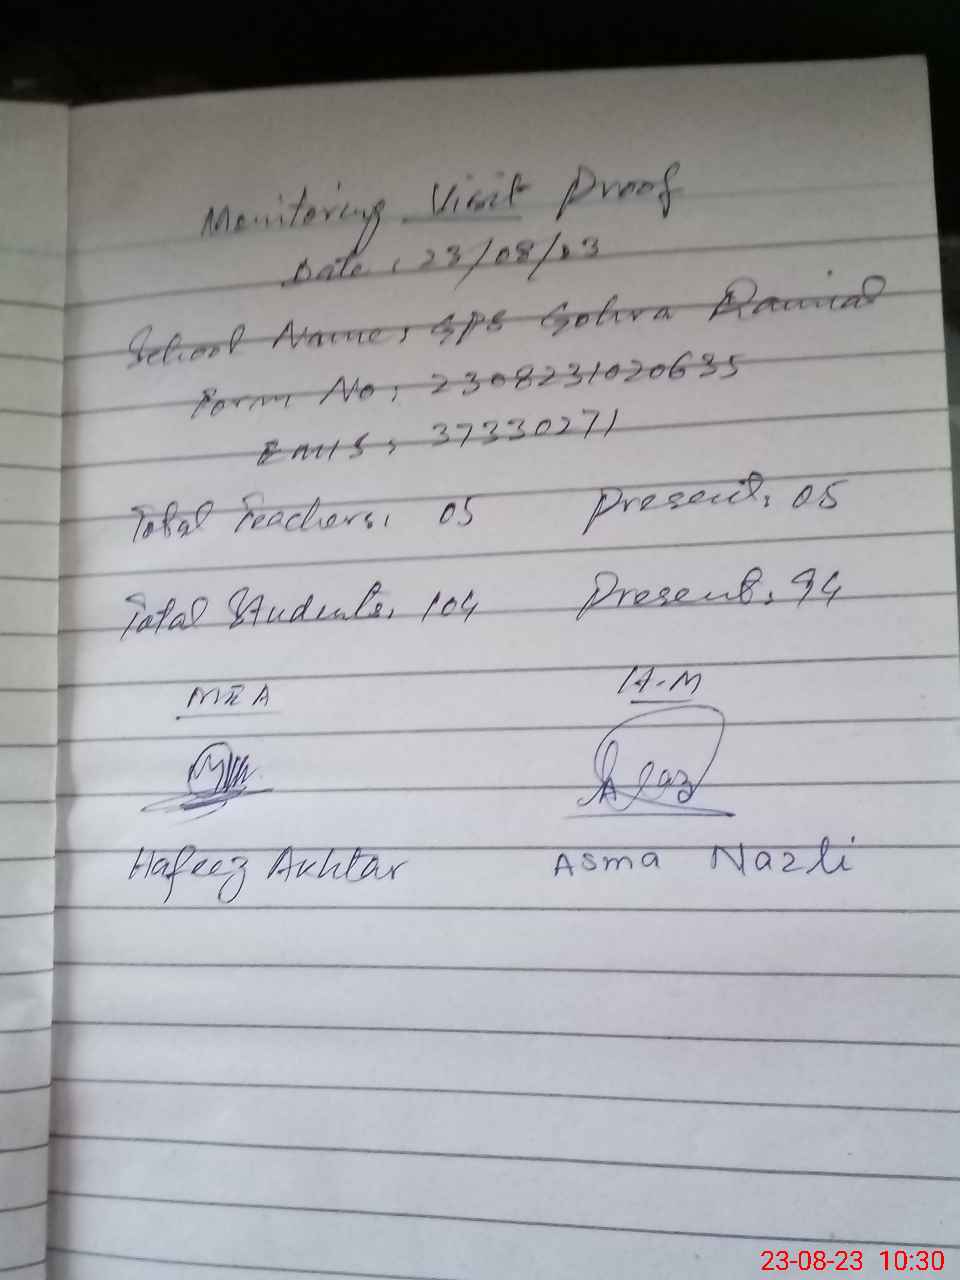 Monitoring Visit Proof
Date: 23/08/23
School Name: GPS Gohra Ramial
Form No: 2308231020635
EMIS: 37330271
Total Teachers: 05 Present: 05
Total Students: 104 Present: 94
MEA H.M
Hafeez Akhtar Asma Nazli
23-08-23 10:30